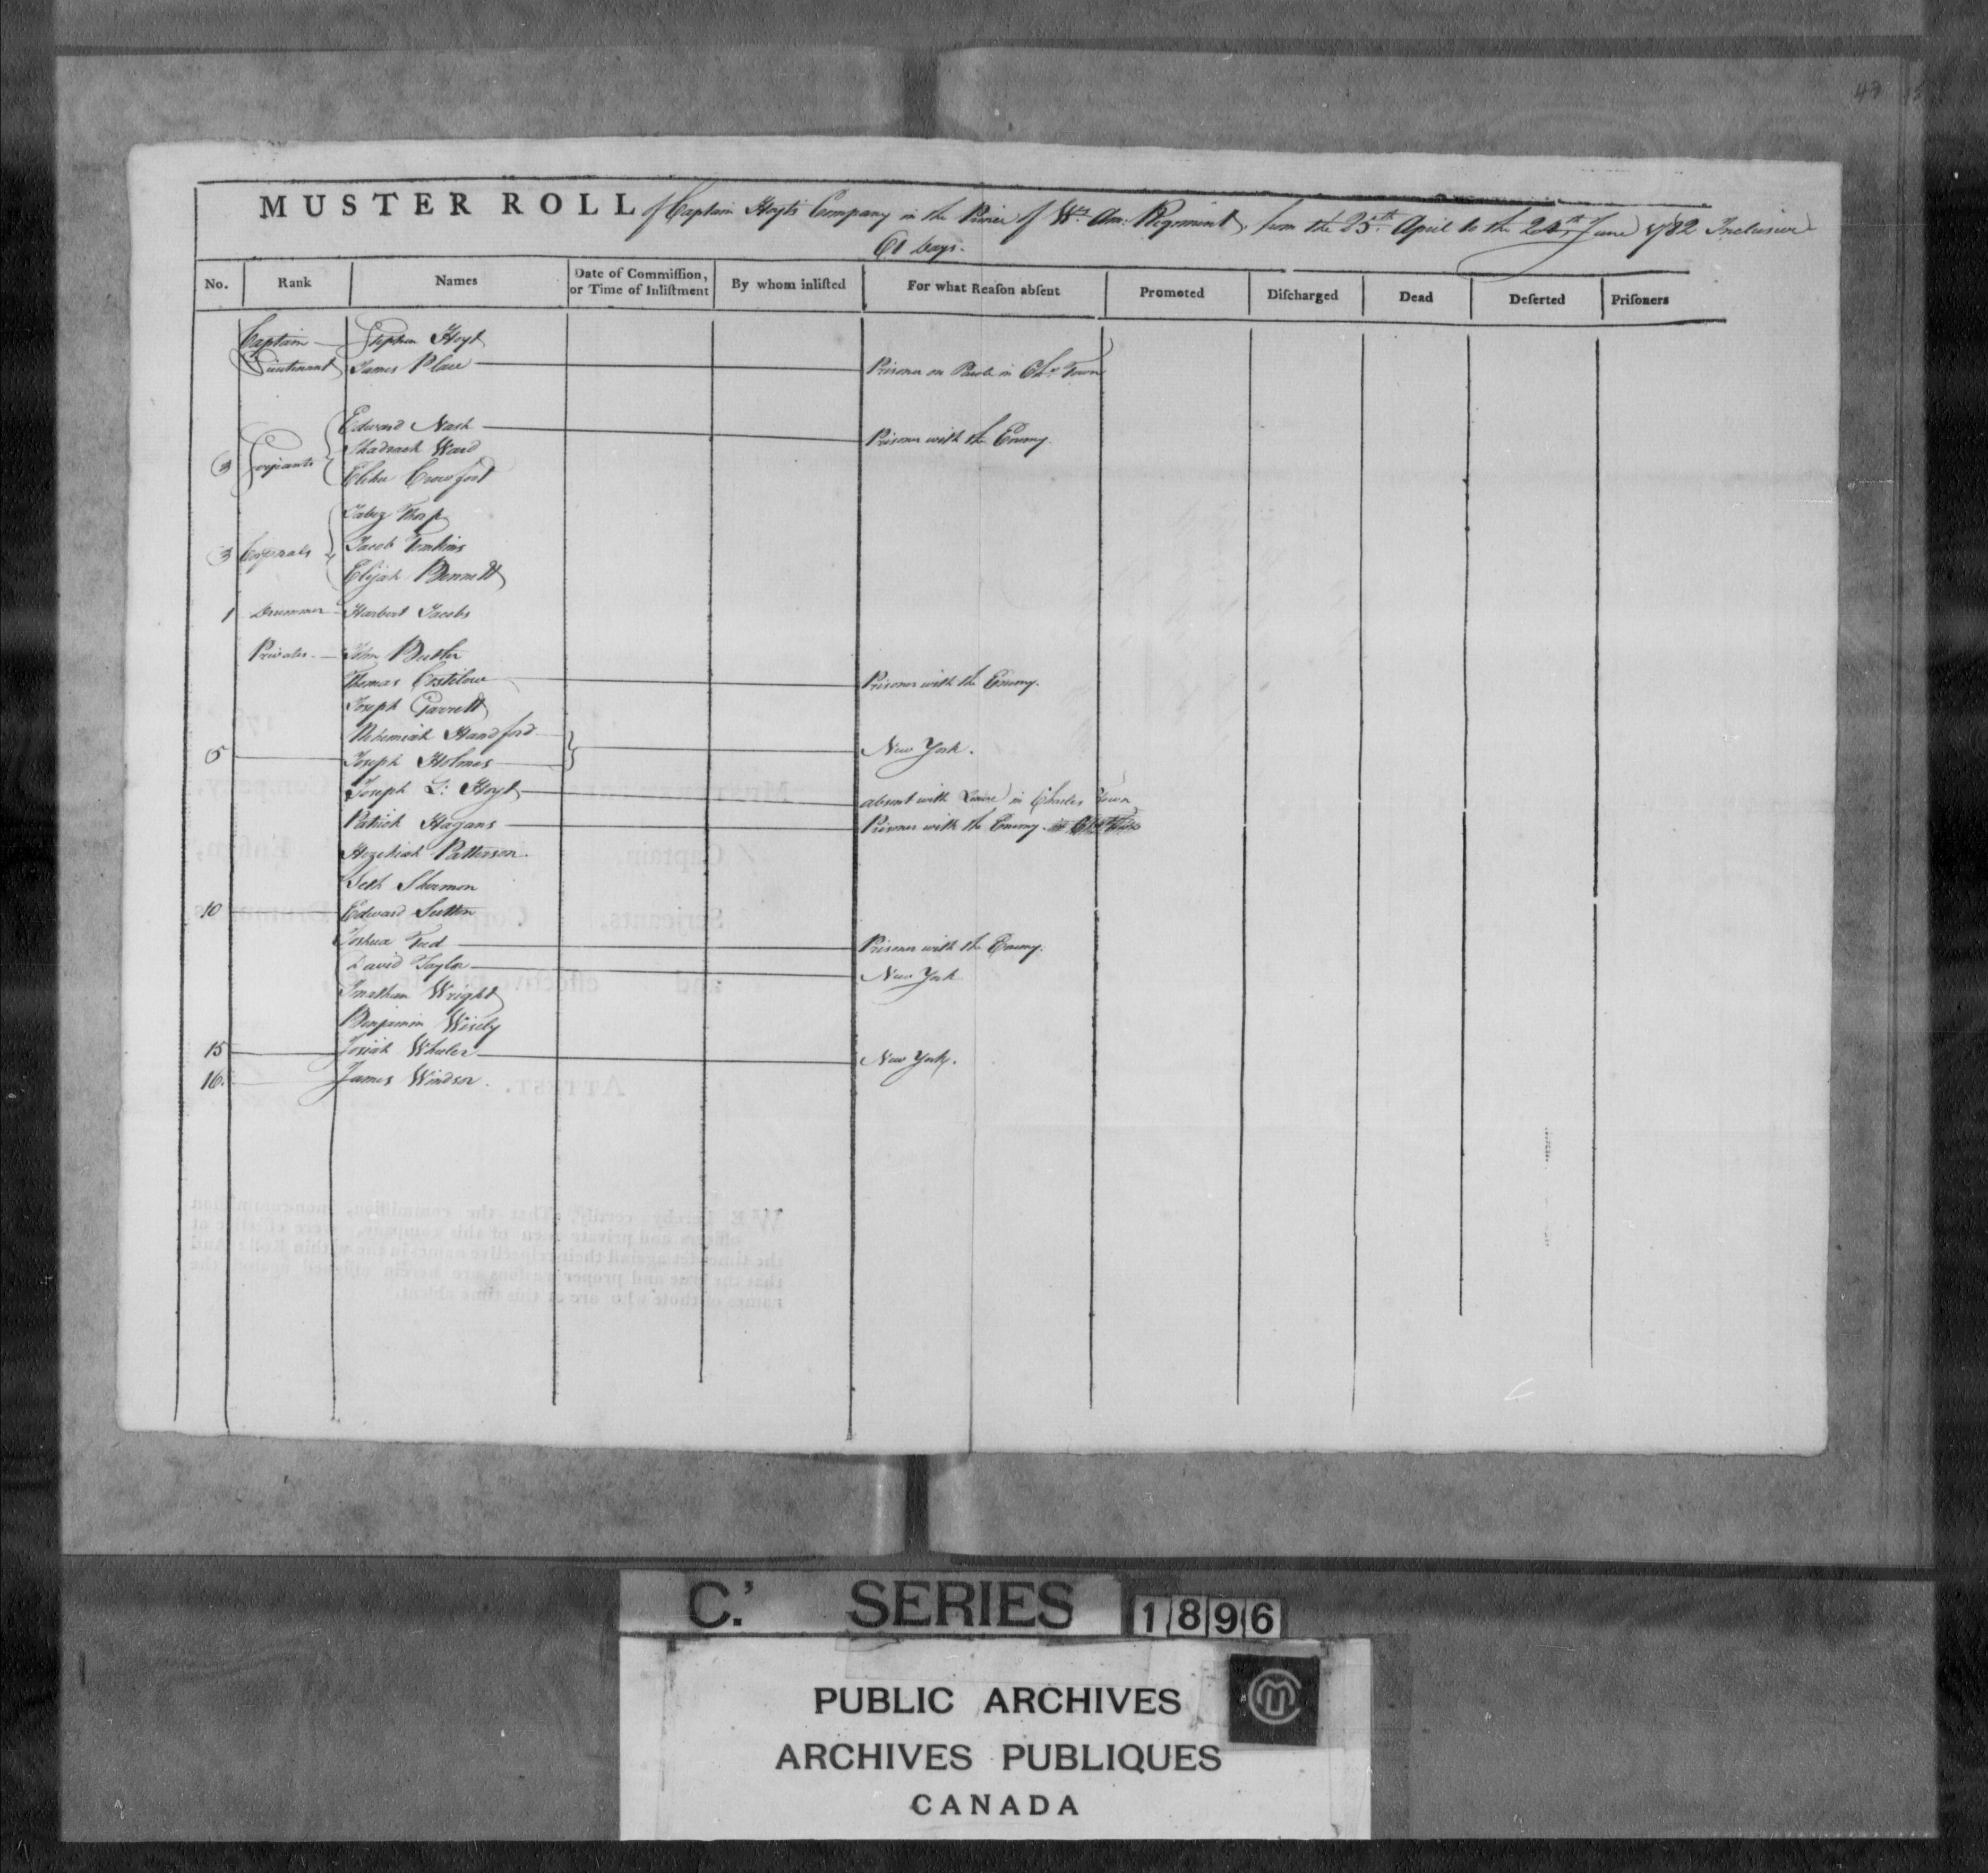 MUSTER ROLL of Captain Hoyt's Company in the Prince of W.s Am: Regiment, from the 25th April to the 24th June 1782 Inclusive
61 days.
No. Rank Names Date of Commiſſion, or Time of Inliſtment By whom inliſted For what Reaſon abſent Promoted Diſcharged Dead Deſerted Priſoners
Captain Stephen Hoyt
Lieutenant James Place Prisoner on Parole in Chs Town
Edward Nash Prisoner with the Enemy
Shadrach Ward
3 Serjeants
Elihu Crawford
Jabez Thorp
3 Corporals Jacob Tomkins
Elijah Bennett
1 Drummer Harbert Jacobs
Privates John Butler
Thomas Costilow Prisoner with the Enemy.
Joseph Garrett
Nehemiah Handford
New York.
5 Joseph Holmes
Joseph L: Hoyt absent with Leave in Charles Town
Patrick Hagans Prisoner with the Enemy.
Hezekiah Patterson.
Seth Shermon
10 Edward Sutton
Joshua Prisoner with the Enemy.
David Taylor New York
Jonathan Wright
Benjamin Wisely
15 Josiah Wheeler New York.
16. James Windsor.
C.' SERIES 1896
PUBLIC ARCHIVES
ARCHIVES PUBLIQUES
CANADA